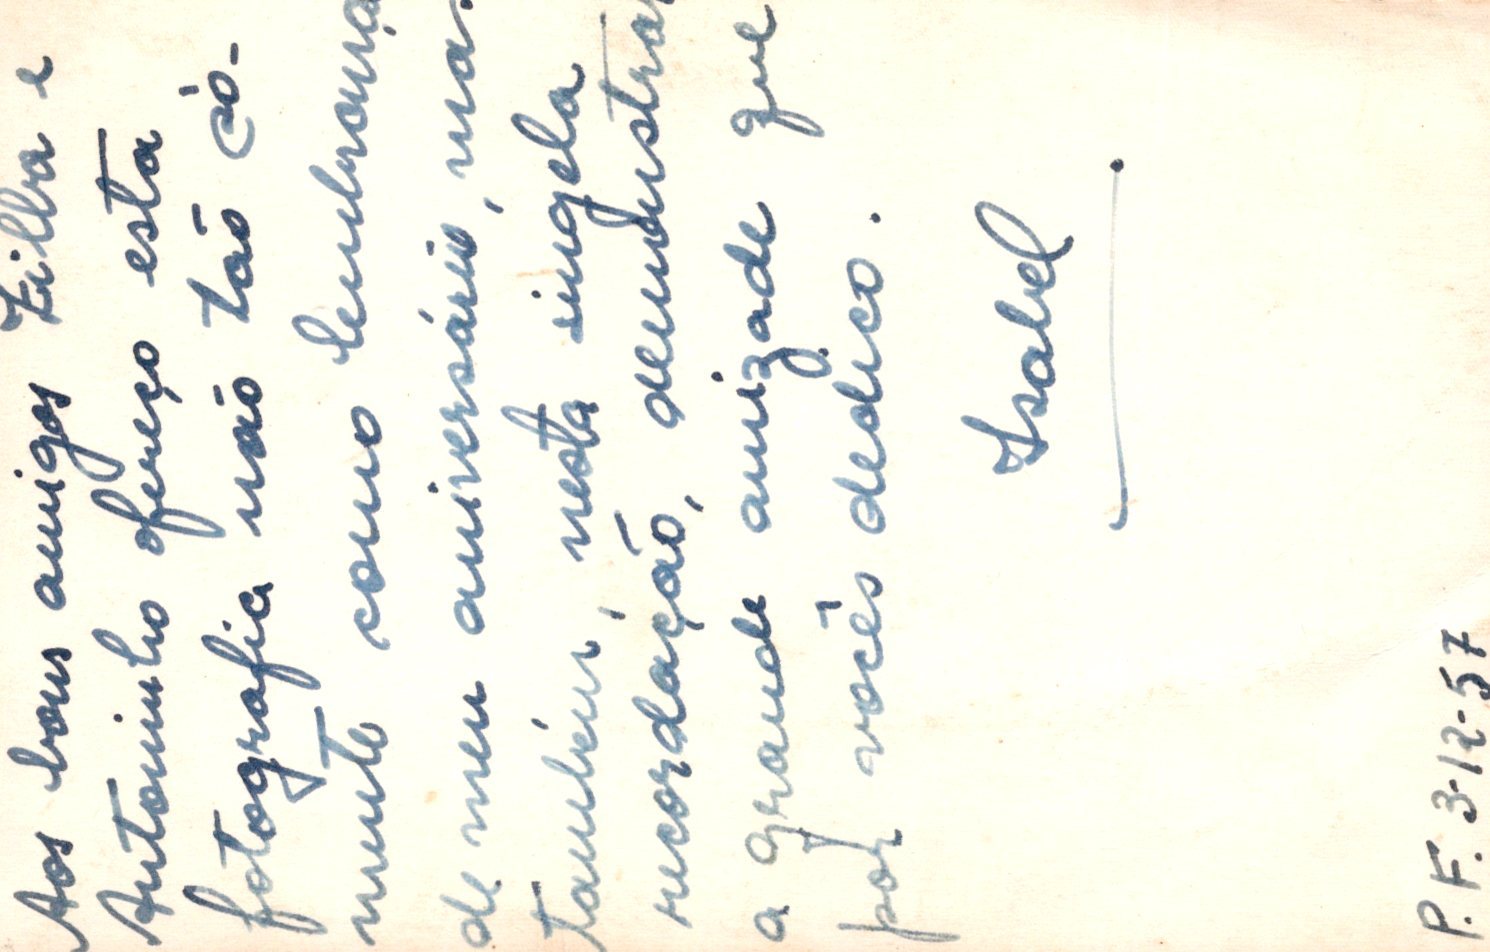 Aos bons amigos Zilba e
Antoninho ofereço esta
fotografia não tão sò-
mente como lembrança
de meu aniversário, mas
também, nesta singela
recordação, demonstrar
a grande amizade que
por vocês dedico.
Isabel
P.F. 3-12-57